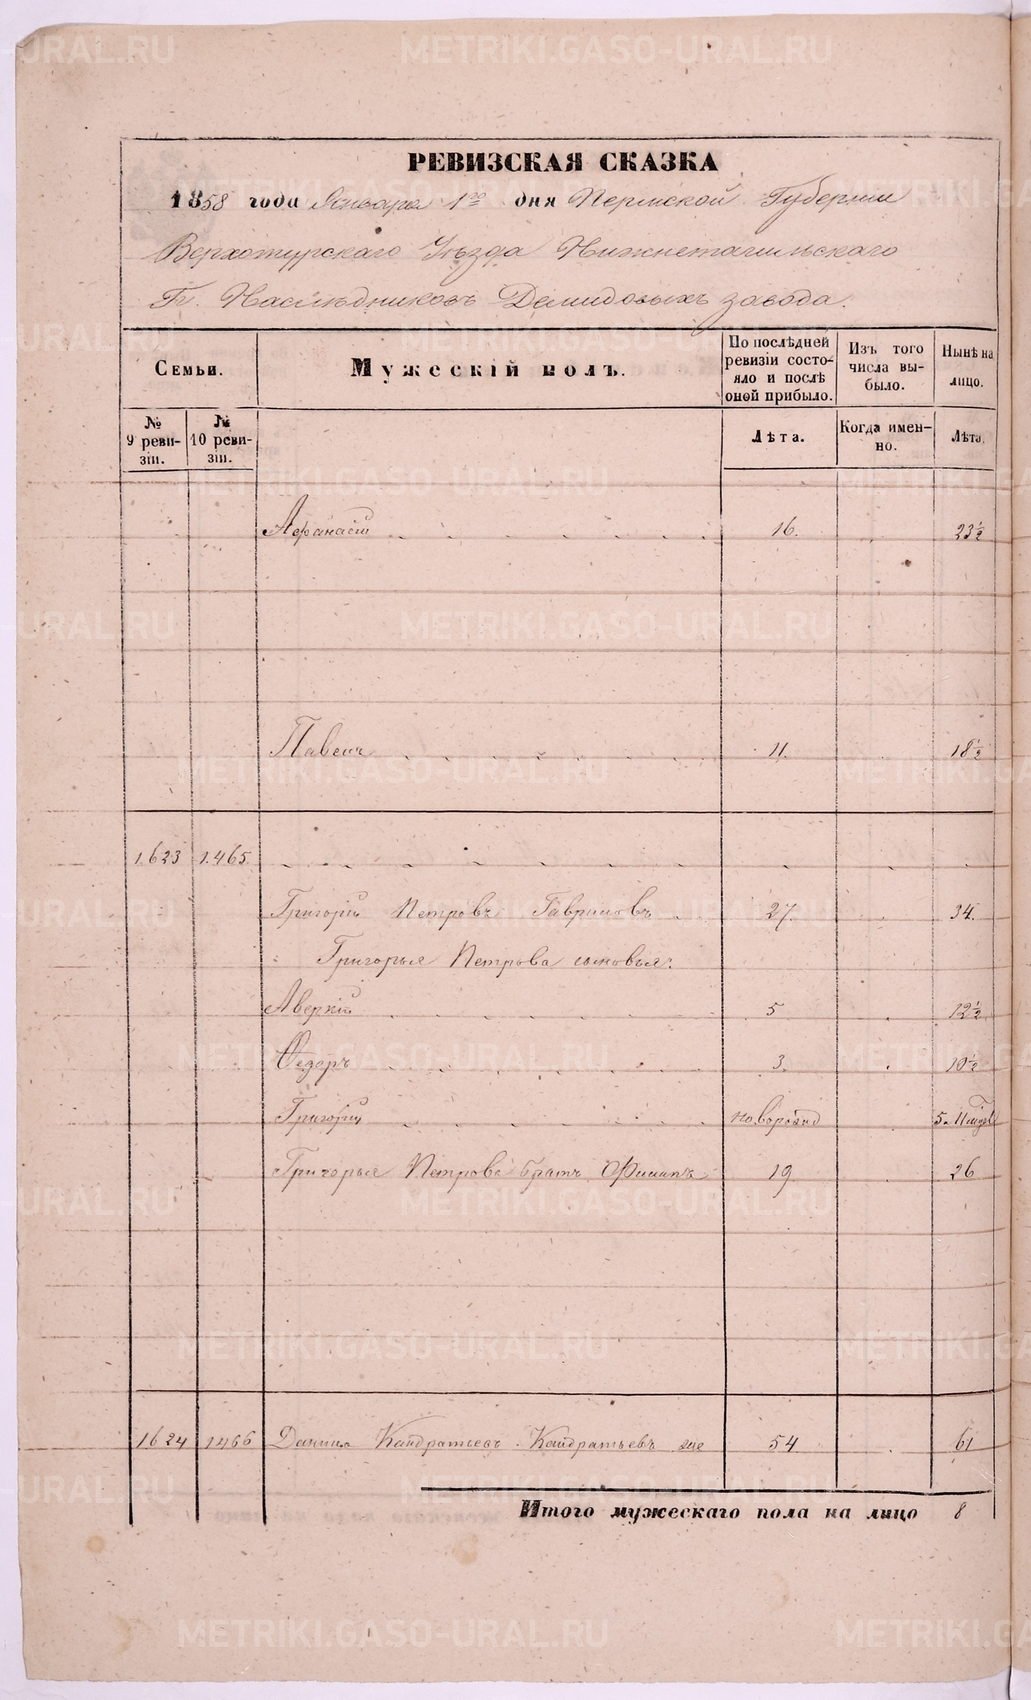 РЕВИЗСКАЯ СКАЗКА
1858 года Января 1го дня Пермской Губернии
Верхотурскаго Уѣзда Нижнетагильскаго
Гг. Наслѣдниковъ Демидовыхъ завода.
Семьи.
Мужескій полъ.
По послѣдней ревизіи состояло и послѣ оной прибыло.
Изъ того числа выбыло.
Нынѣ на лицо.
№ 9 ревизіи.
№ 10 ревизіи.
Лѣта.
Когда именно.
Лѣта.
Афанасій 16. 23½
Павелъ 11. 18½
1623 1465
Григорій Петровъ Гавриловъ 27. 34.
Григорья Петрова сыновья:
Аверкій 5 12½
Ѳедоръ 3. 10½
Григорій новорожд
Григорья Петрова братъ Филипъ 19 26
1624 1466 Данило Кондратьевъ Кондратьевъ 54 61
Итого мужескаго пола на лицо 8
METRIKI.GASO-URAL.RU